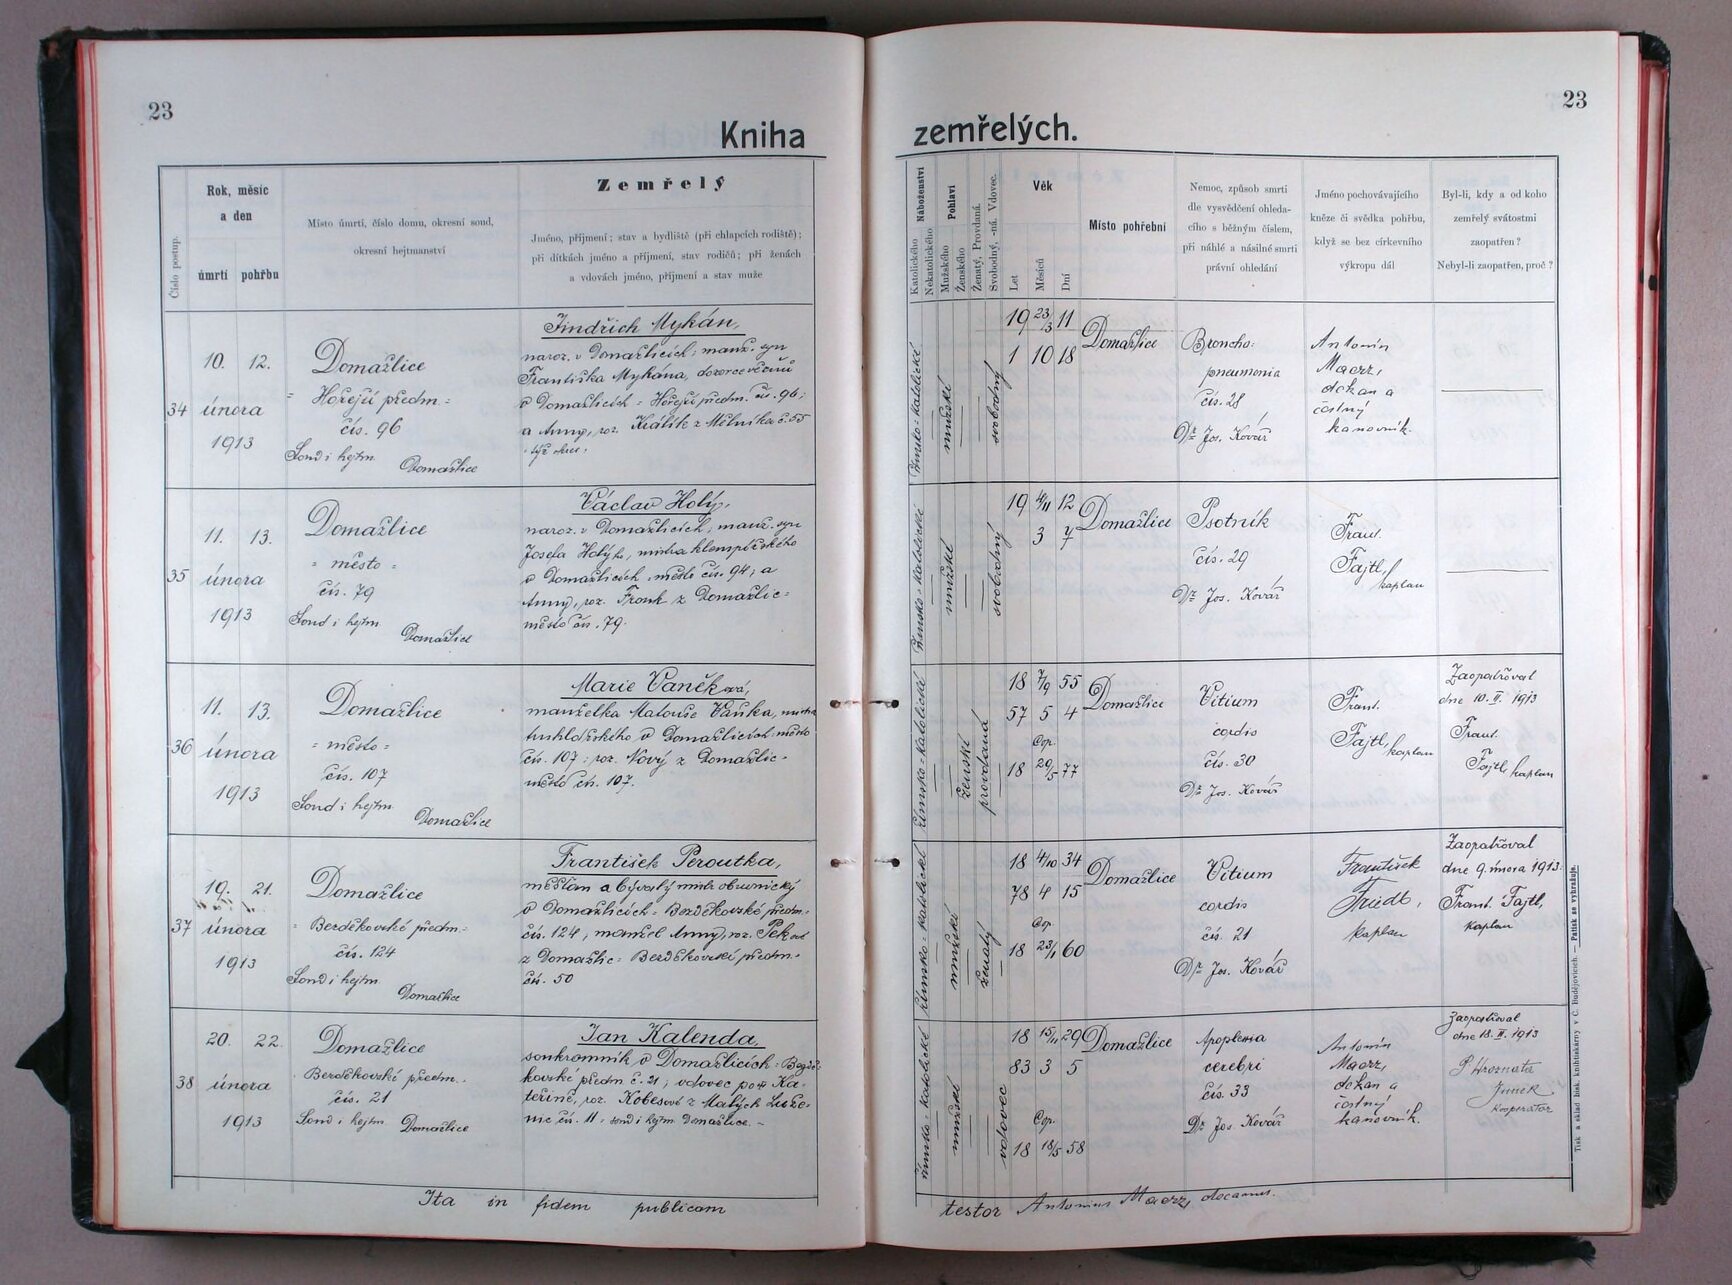 23
23
Kniha zemřelých.
Číslo postup.
Rok, měsíc
a den
úmrtí pohřbu
Místo úmrtí, číslo domu, okresní soud,
okresní hejtmanství
Zemřelý
Jméno, příjmení; stav a bydliště (při chlapcích rodiště);
při dítkách jméno a příjmení, stav rodičů; při ženách
a vdovách jméno, příjmení a stav muže
Náboženství
Katolického
Nekatolického
Pohlaví
Mužského
Ženského
Ženatý, Provdaná.
Svobodný, -ná. Vdovec.
Věk
Let
Měsíců
Dní
Místo pohřební
Nemoc, způsob smrti
dle vysvědčení ohleda-
cího s běžným číslem,
při náhlé a násilné smrti
právní ohledání
Jméno pochovávajícího
kněze či svědka pohřbu,
když se bez církevního
výkropu dál
Byl-li, kdy a od koho
zemřelý svátostmi
zaopatřen?
Nebyl-li zaopatřen, proč?
34
10. 12.
února
1913
Domažlice
= Hořejší předm =
čís. 96
Soud i hejtm.
Domažlice
Jindřich Mykán,
naroz. v Domažlicích; manž. syn
Františka Mykána, dozorce věznů
v Domažlicích = Hořejší předm. čís. 96;
a Anny, roz. Králík z Mělníka č. 55
římsko-katolické
mužské
svobodný
19 23/3 11
1 10 18
Domažlice
Broncho:
pneumonia
čís. 28
Dr. Jos. Kovář
Antonín
Maerz,
děkan a
čestný
kanovník.
35
11. 13.
února
1913
Domažlice
= město =
čís. 79
Soud i hejtm
Domažlice
Václav Holý,
naroz. v Domažlicích, manž. syn
Josefa Holýh, mistra klempířského
v Domažlicích, město čís. 94; a
Anny, roz. Frank z Domažlic=
město čís. 79.
římsko-katolické
mužské
svobodný
19 4/11 12
3 7
Domažlice
Psotník
čís. 29
Dr. Jos. Kovář
Frant.
Fajtl,
kaplan
36
11. 13.
února
1913
Domažlice
= město =
čís. 107
Soud i hejtm.
Domažlice
Marie Vaněková,
manželka Matouše Vaňka, mistra
truhlářského v Domažlicích: město
čís. 107; roz. Nový z Domažlic-
město čís. 107.
římsko-katolické
ženské
provdaná
18 7/9 55
57 5 4
Cop.
18 29/5 77
Domažlice
Vitium
cordis
čís. 30
Dr. Jos. Kovář
Frant.
Fajtl, kaplan
Zaopatřoval
dne 10. II. 1913
Frant.
Fajtl, kaplan
37
19. 21.
února
1913
Domažlice
= Bezděkovské předm =
čís. 124
Soud i hejtm
Domažlice
František Peroutka,
měšťan a bývalý mistr obuvnický
v Domažlicích = Bezděkovské předm.
čís. 124, manžel Anny, roz.
z Domažlic = Bezděkovské předm.
čís. 50
římsko-katolické
mužské
ženatý
18 4/10 34
78 4 15
Cop.
18 23/1 60
Domažlice
Vitium
cordis
čís. 21
Dr. Jos. Kovář
František
Friedl,
kaplan
Zaopatřoval
dne 9. února 1913.
Frant. Fajtl,
kaplan
38
20. 22.
února
1913
Domažlice
Bezděkovské předm.
čís. 21
Soud i hejtm Domažlice
Jan Kalenda,
soukromník v Domažlicích = Bezdě-
kovské předm č. 21; vdovec po † Ka-
teřině, roz. Kobesové z Malých Luže-
nic čís. 11. soud i hejtm Domažlice. -
římsko-katolické
mužské
vdovec
18 15/11 29
83 3 5
Cop.
18 18/5 58
Domažlice
Apoplexia
cerebri
čís. 33
Dr. Jos. Kovář
Antonín
Maerz,
děkan a
čestný
kanovník.
Zaopatřoval
dne 18. II. 1913
P. Hroznata
kooperátor
Ita in fidem publicam
testor Antonius Maerz, decanus.
Tisk a sklad bisk. knihtiskárny v Č. Budějovicích. — Patisk se vyhražuje.